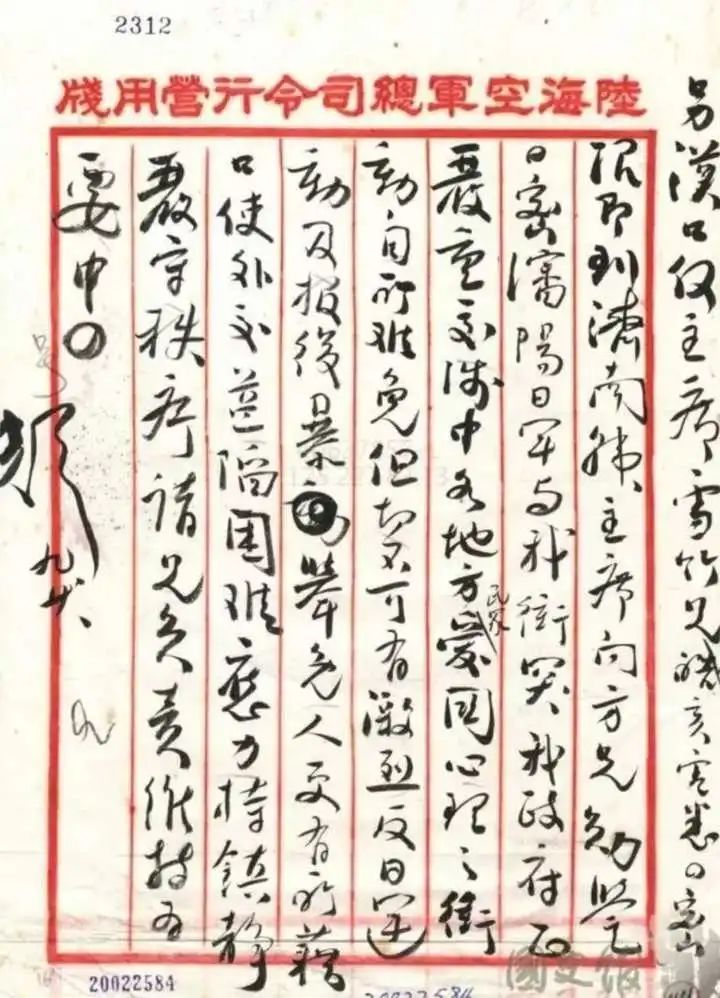 2312
陸海空軍總司令行營用牋
另漢口何主席雪竹兄號亥電悉。密
限即到濟南韓主席向方兄勛鑒
密瀋陽日軍與我衝突我政府正
嚴重交涉中各地方民眾愛國心理之衝
動自所難免但切不可有激烈反日運
動及報復暴舉免人更有所藉
口使外交益陷困難應力持鎮靜
嚴守秩序請兄負責維持為
要中
號
20022584
20022584
國史館